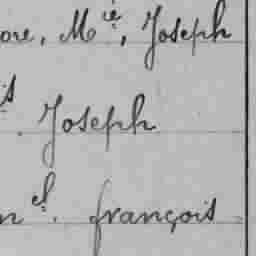 ore, Mie, Joseph
s. Joseph
n el. françois